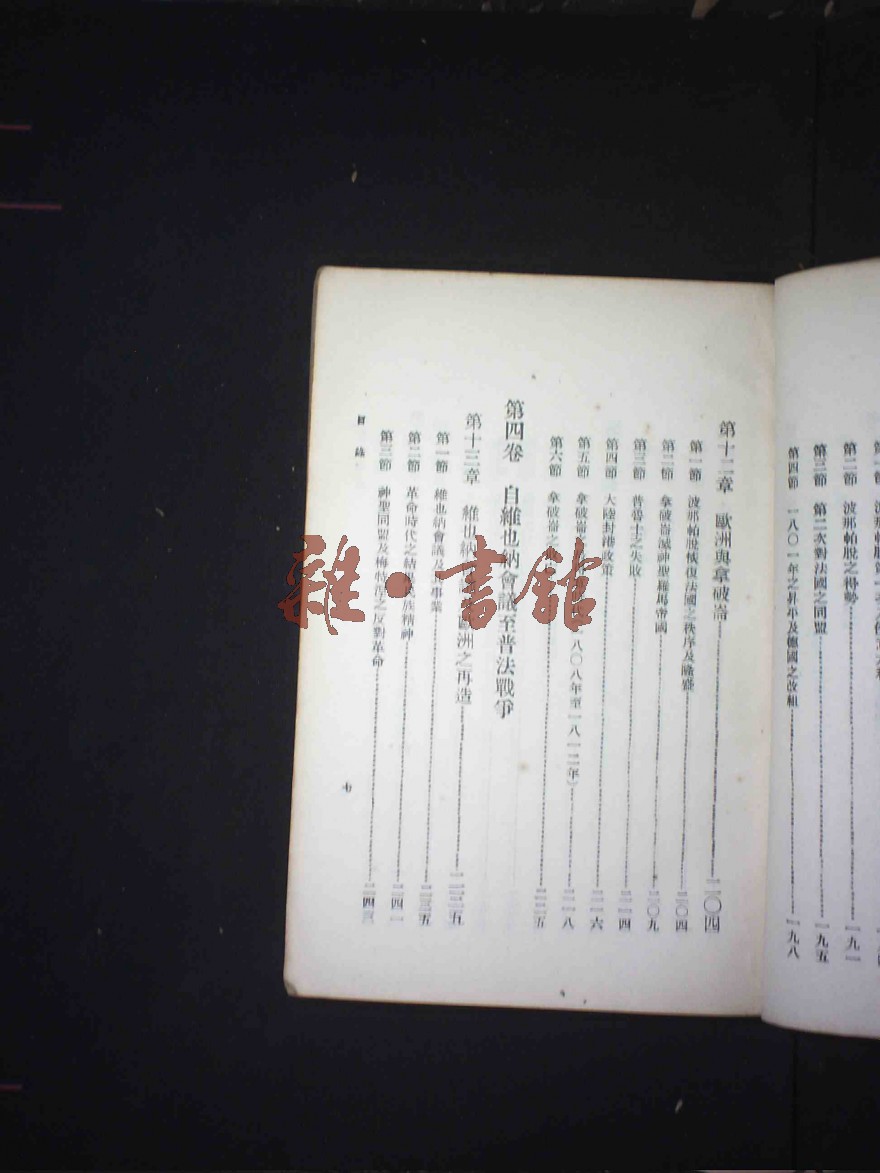 第二節　波那帕脫之得勢⋯⋯一九一
第三節　第二次對法國之同盟⋯⋯一九五
第四節　一八〇一年之昇平及德國之改組⋯⋯一九八
第十二章　歐洲與拿破崙⋯⋯二〇四
第一節　波那帕脫恢復法國之秩序及隆盛⋯⋯二〇四
第二節　拿破崙滅神聖羅馬帝國⋯⋯二〇九
第三節　普魯士之失敗⋯⋯二一四
第四節　大陸封港政策⋯⋯二一六
第五節　拿破崙　一八〇八年至一八一二年）⋯⋯二一八
第六節　拿破崙之⋯⋯二二五
第四卷　自維也納會議至普法戰爭
第十三章　維也納　歐洲之再造⋯⋯二三五
第一節　維也納會議及其事業⋯⋯二三五
第二節　革命時代之結　民族精神⋯⋯二四一
第三節　神聖同盟及梅　之反對革命⋯⋯二四三
目錄
七
雜·書館